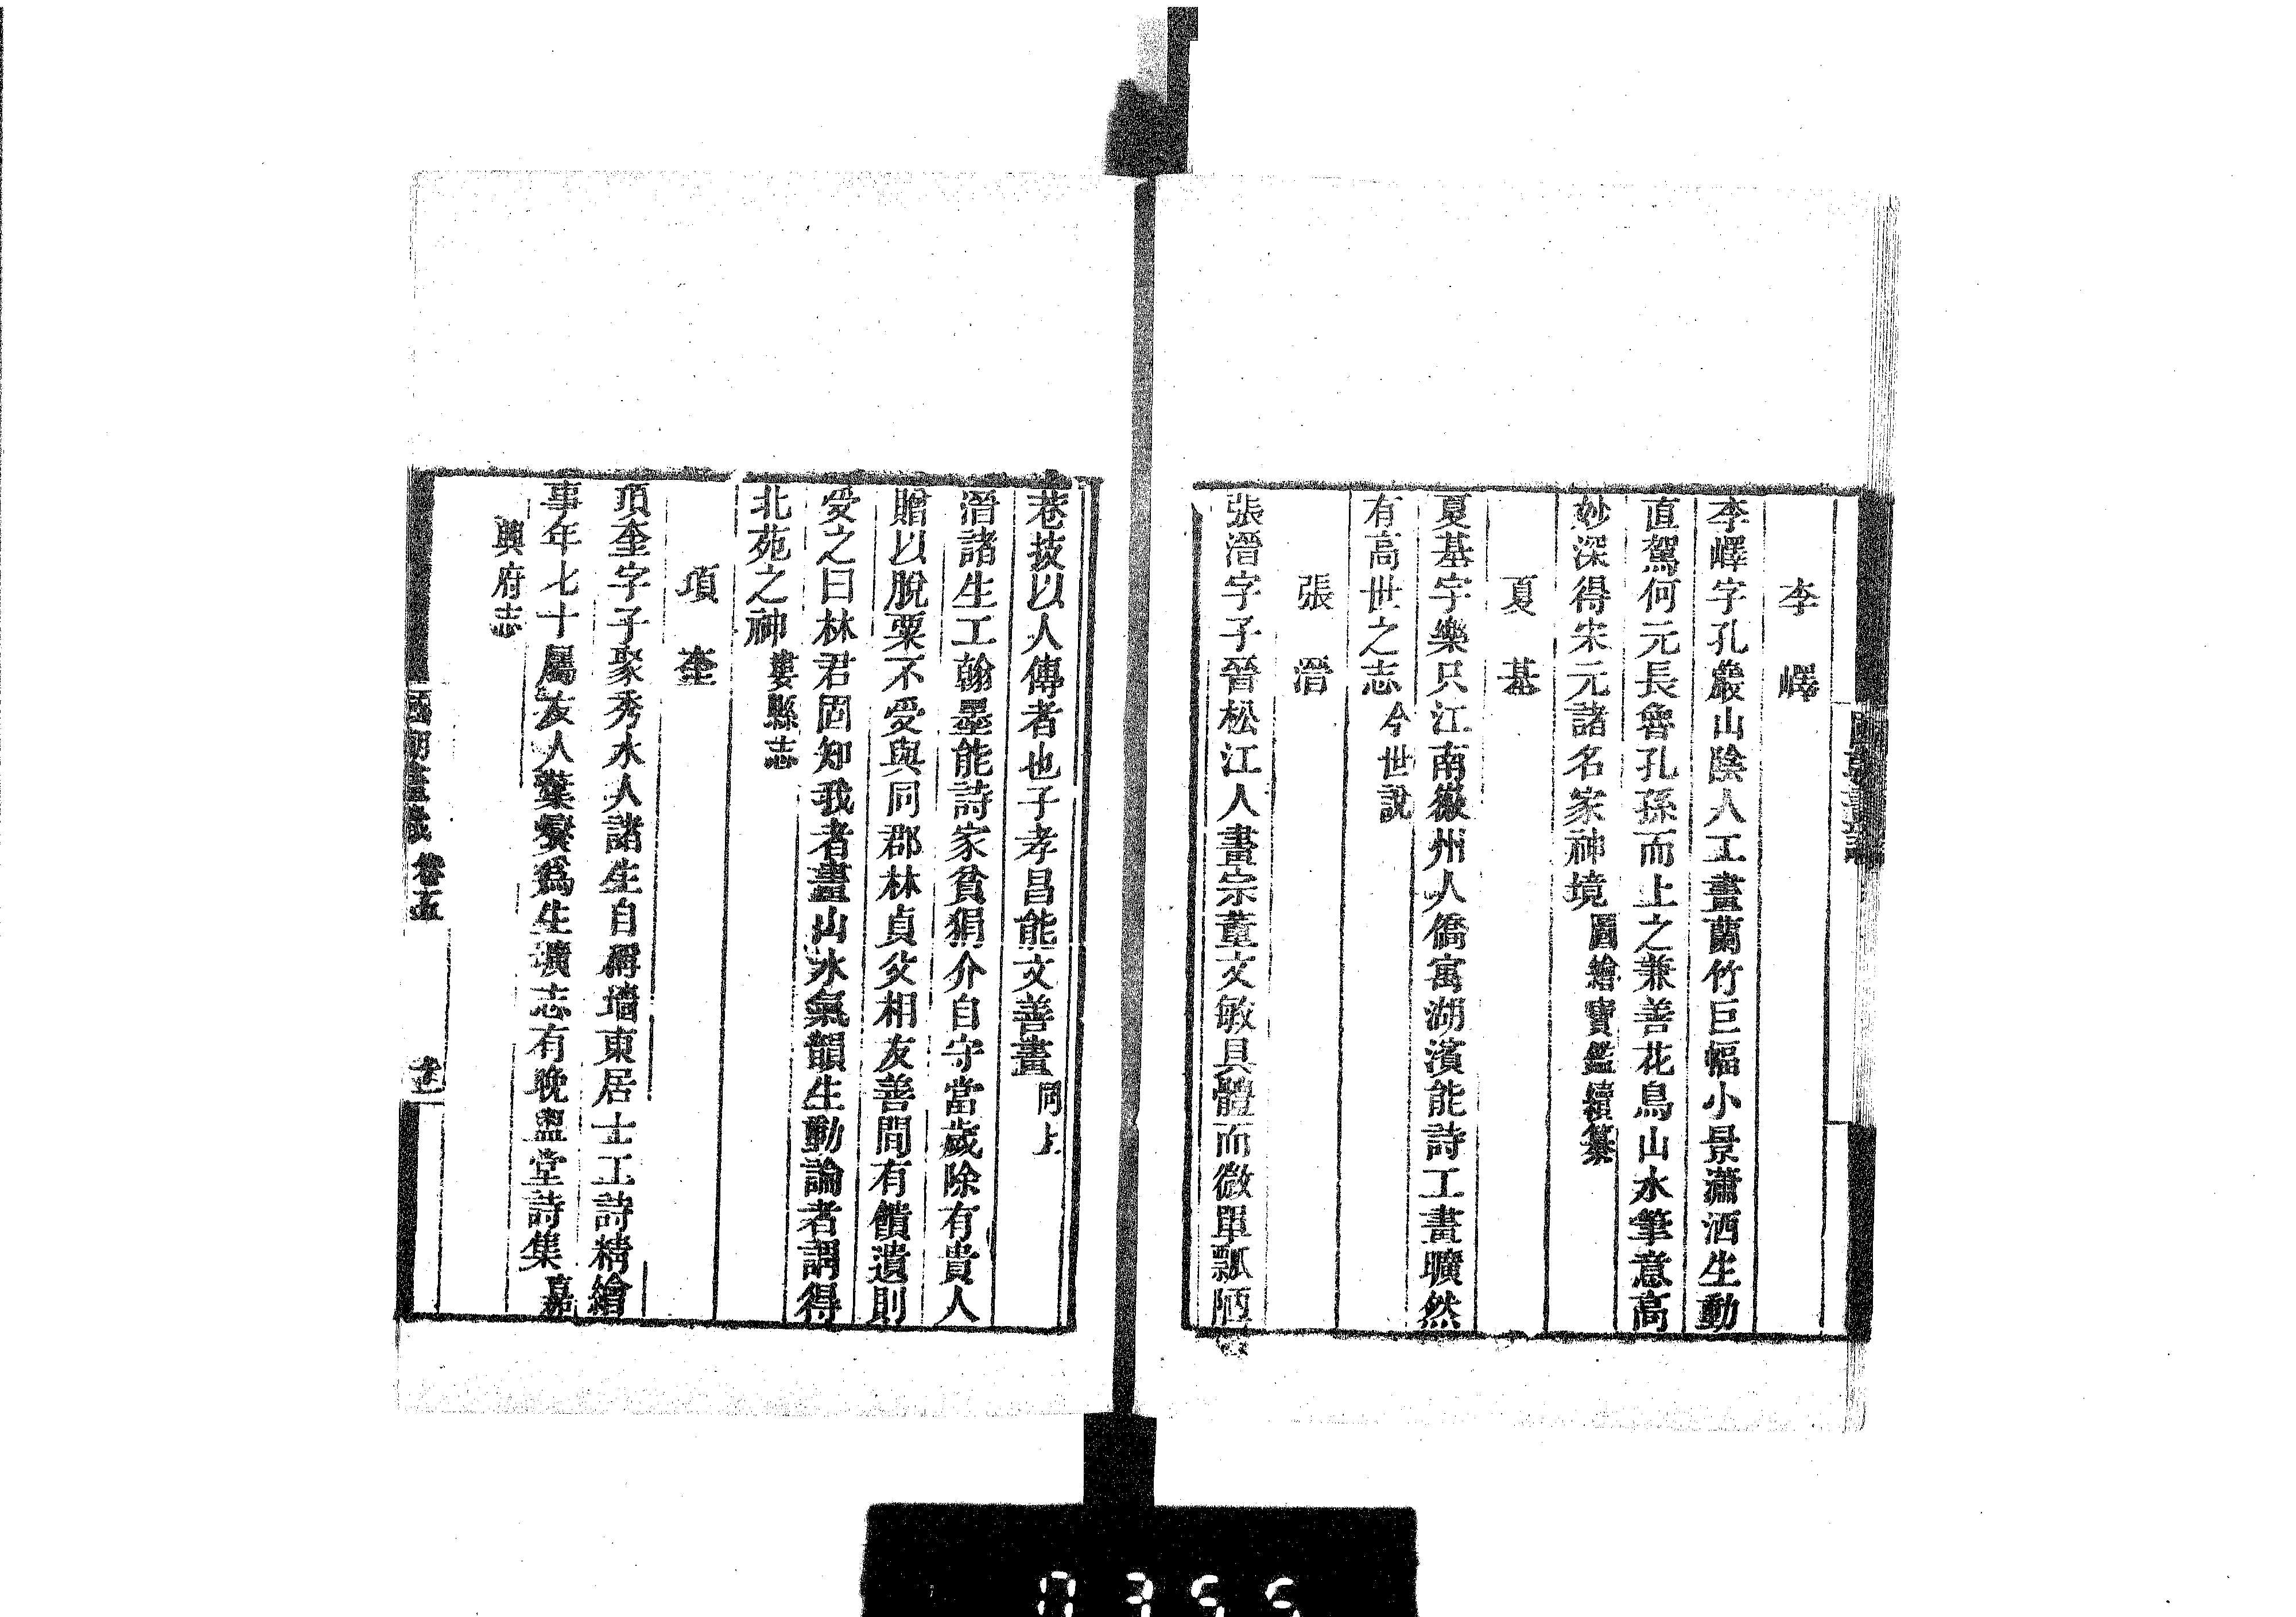 李嶧
李嶧字孔嚴山陰人工畫蘭竹巨幅小景瀟洒生動
直駕何元長魯孔孫而上之兼善花鳥山水筆意高
妙深得宋元諸名家神境圖繪寶鑑續纂
夏基
夏基字樂只江南徽州人僑寓湖濱能詩工畫曠然
有高世之志今世說
張溍
張溍字子晉松江人畫宗董文敏具體而微單瓢陋
巷技以人傳者也子孝昌能文善畫同上
溍諸生工翰墨能詩家貧狷介自守當歲除有貴人
贈以脫粟不受與同郡林貞父相友善間有饋遺則
受之曰林君固知我者畫山水氣韻生動論者謂得
北苑之神婁縣志
項奎
項奎字子聚秀水人諸生自稱墻東居士工詩精繪
事年七十屬友人葉燮爲生壙志有晚盥堂詩集嘉
興府志
國朝畫識 卷五
0355